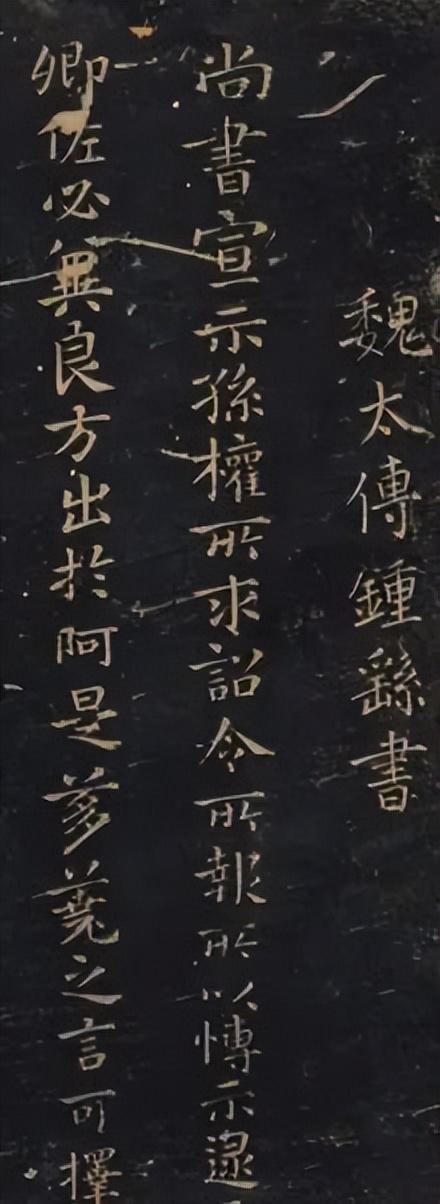 魏太傅鍾繇書
尚書宣示孫權所求詔令所報所以博示逮
卿佐必冀良方出於阿是芻蕘之言可擇